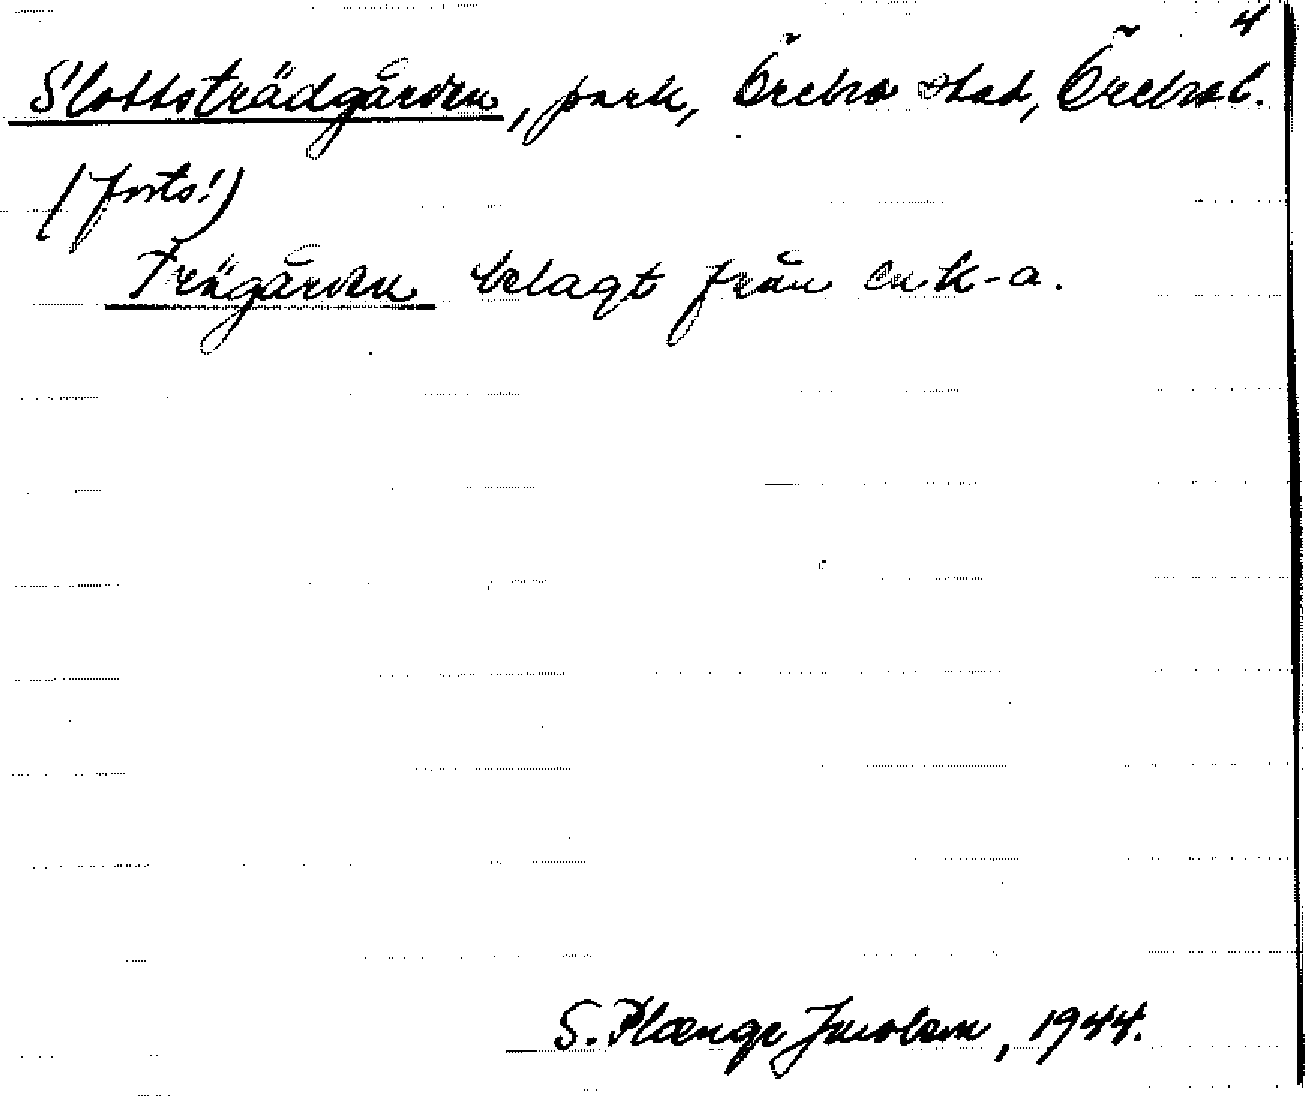 4
Slottsträdgården, park, Örebro stad, Örebro l.
(forts!)
Trägården belagt från en k-a.
S. Plænge Jacobson, 1944.